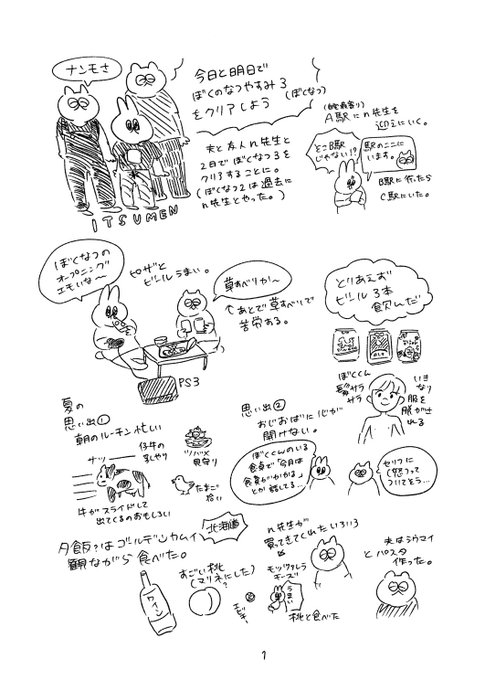 ナンモさ
今日と明日で
ぼくのなつやすみ3
(ぼくなつ)
をクリアしよう
夫と友人n先生と
2日でぼくなつ3を
クリアすることに。
(ぼくなつ2は過去に
n先生とやった。)
ITSUMEN
A駅にn先生を
迎えにいく。
どこB駅
じゃない!?
駅のここに
います。
B駅に行ったら
C駅にいた。
ぼくなつの
オープニング
エモいな〜
ピザと
ビールうまい。
草すべりか〜
↑あとで草すべりで
苦労する。
PS3
とりあえず
ビール3本
飲んだ
ぼくくん
髪サラ
サラ
いき
なり
服を
脱がさ
れる
夏の
思い出①
朝のルーチン忙しい
仔牛の
ツバメ
見守り
たまご
拾い
牛がスライドして
出てくるのおもしろい
思い出②
おじおばに心が
開けない。
ぼくくんのいる
食卓で「今月は
食費がかかる」
とか話してる…
セリフに
(怒)って
ついてそう…
北海道
夕飯?はゴールデンカムイ
観ながら食べた。
ワイン
すごい桃
(マリネにした)
n先生が
買ってきてくれたいろいろ
モッツァレラ
チーズ
うまい
桃と食べた
夫はラウマイ
とパスタ
作った。
1